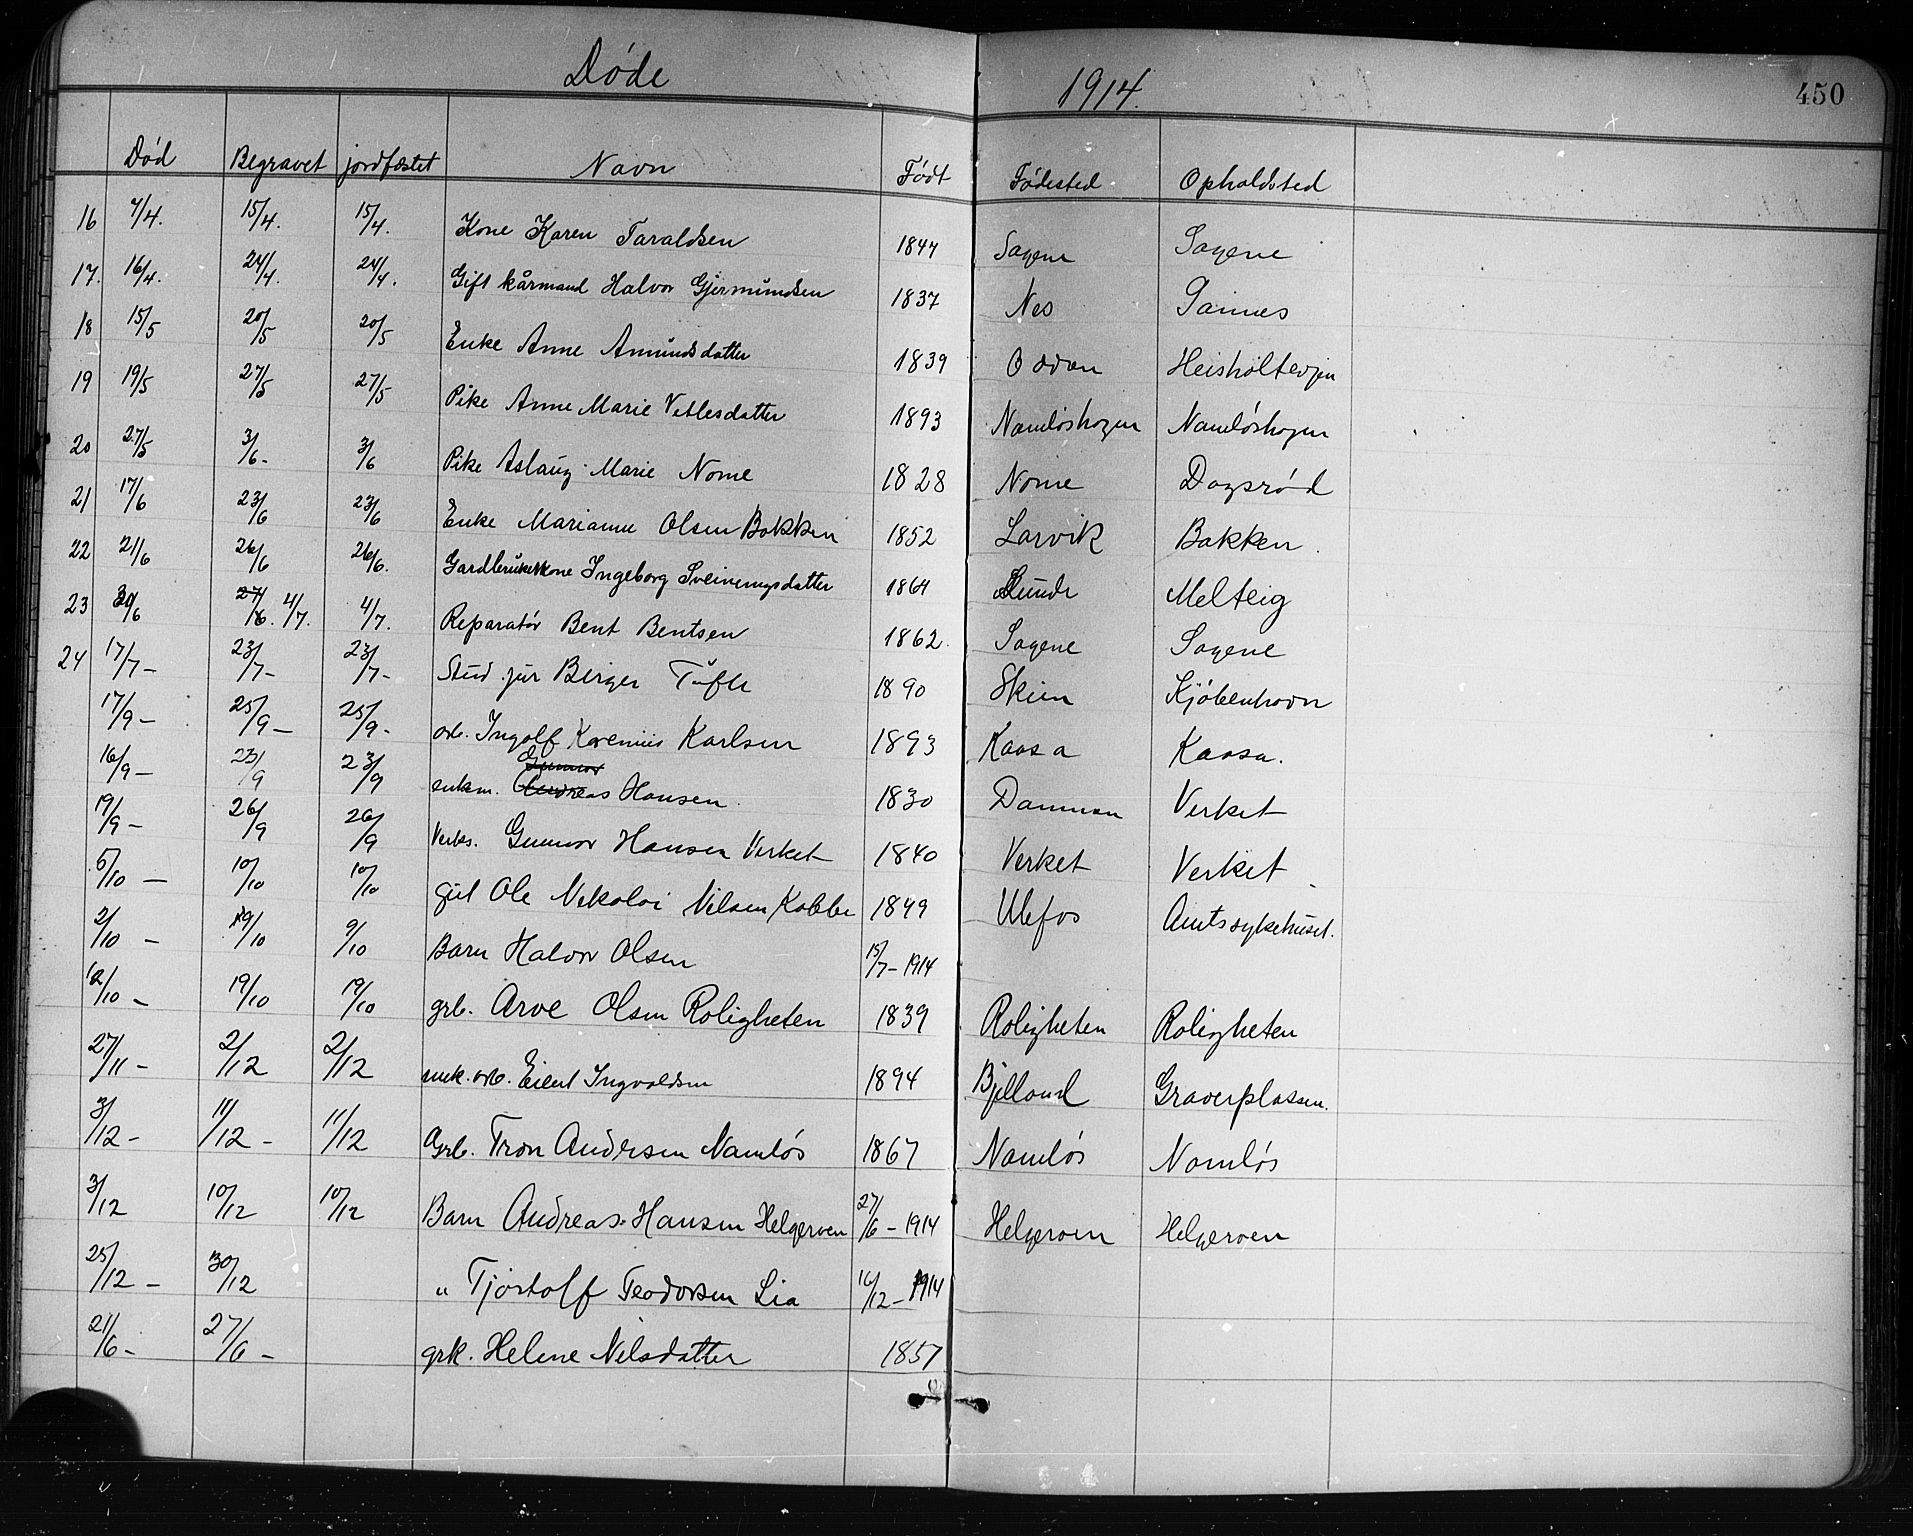 Døde 1914. 450
Død Begravet jordfæstet Navn Født Fødested Opholdsted
16 7/4. 15/4. 15/4. Kone Karen Taraldsen 1844 Sagene Sagene
17. 16/4. 24/4. 24/4. Gift kårmand Halvor Gjermundsen 1837 Nes
18 15/5 20/5 20/5 Enke Anne Amundsdatter 1839 Odden
19 19/5 27/5 27/5 Pike Anne Marie Vetlesdatter 1893 Namløshagen Namløshagen
20 27/5 3/6- 3/6 Pike Aslaug Marie Nome 1828 Nome Dagsrød
21 17/6 23/6 23/6 Enke Marianne Olsen Bakken 1852 Larvik Bakken.
22 21/6 26/6 26/6. Gardbrukerkone Ingeborg Sveinungsdatter 1864 Lunde Melteig
23 30/6 27/6. 4/7. 4/7. Reparatør Bent Bentsen 1862. Sagene Sagene
24 17/7- 23/7- 23/7- Stud. jur Birger Tufte 1890 Skien Kjøbenhavn
17/9- 25/9- 25/9- arb. Ingolf Karenius Karlsen 1893 Kaasa Kaasa.
16/9- 23/9 23/9 enkem. Gunnar Andreas Hansen 1830 Dammen Verket
19/9- 26/9 26/9 Verks. Gunnar Hansen Verket 1840 Verket Verket
5/10- 10/10 10/10 gift Ole Nikolai Nilsen Kabbe 1849 Ulefos Amtssykehuset.
2/10- 9/10 9/10 Barn Halvor Olsen 15/7-1914
12/10- 19/10 19/10 grb. Arve Olsen Roligheten 1839 Roligheten Roligheten
27/11- 2/12 2/12 arb. Eilert Ingvaldsen 1894 Bjelland Graverplassen.
3/12- 11/12- 11/12 Grb. Tron Andersen Namløs 1867 Namløs Namløs
3/12 10/12 10/12 Barn Andreas Hansen Helgeroen 27/6-1914 Helgeroen Helgeroen
25/12- 30/12 " Tjostolf Teodorsen Lia 16/12-1914
21/6- 27/6- grk. Helene Nilsdatter 1857